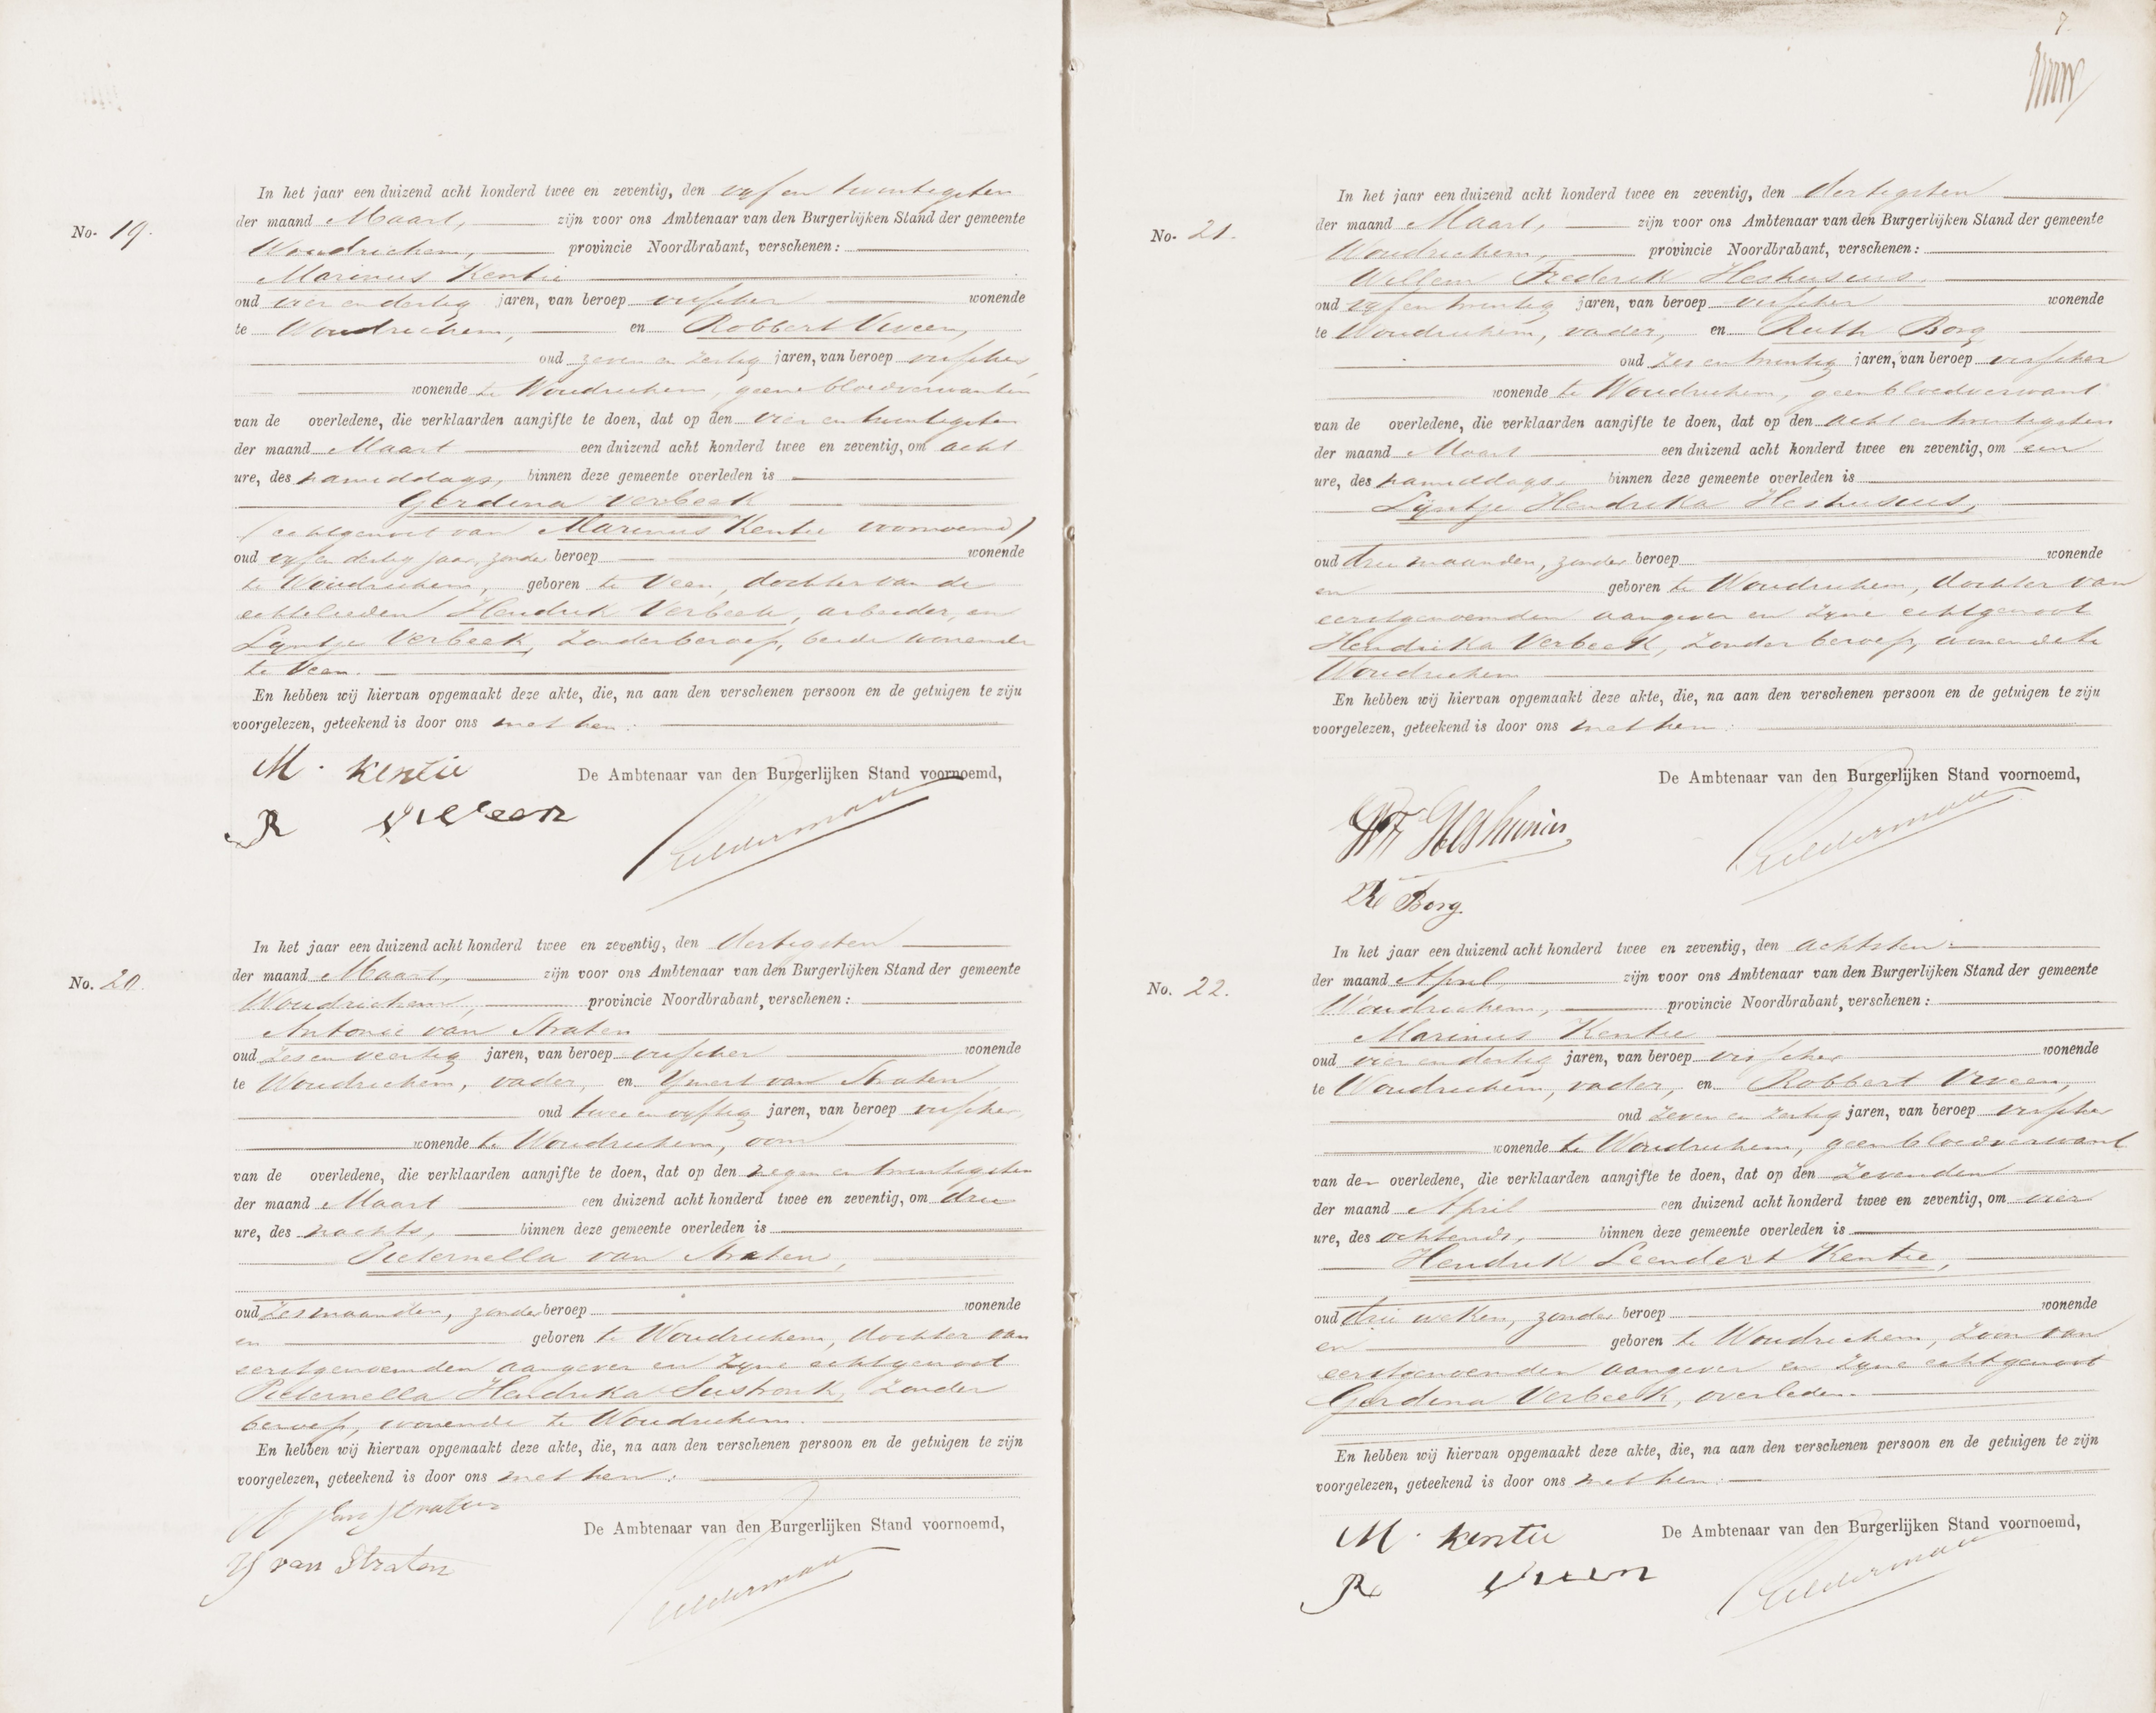 No. 19.
In het jaar een duizend acht honderd twee en zeventig, den vyf en twintigsten
der maand Maart, zijn voor ons Ambtenaar van den Burgerlijken Stand der gemeente
Woudrichem, provincie Noordbrabant, verschenen:
Marinus Kentie
oud vier en dertig jaren, van beroep visscher wonende
te Woudrichem, en Robbert Viveen,
oud zeven en zestig jaren, van beroep visscher,
wonende te Woudrichem, geene bloedverwanten
van de overledene, die verklaarden aangifte te doen, dat op den vier en twintigsten
der maand Maart een duizend acht honderd twee en zeventig, om acht
ure, des namiddags, binnen deze gemeente overleden is
Gerdina Verbeek
(echtgenoot van Marinus Kentie voornoemd)
oud vyf en dertig jaar, zonder beroep wonende
te Woudrichem, geboren te Veen, dochter van de
echtelieden Hendrik Verbeek, arbeider, en
Lyntje Verbeek, zonder beroep, beide wonende
te Veen.
En hebben wij hiervan opgemaakt deze akte, die, na aan den verschenen persoon en de getuigen te zijn
voorgelezen, geteekend is door ons met hen.
M. Kentie
De Ambtenaar van den Burgerlijken Stand voornoemd,
R Viveen
No. 20.
In het jaar een duizend acht honderd twee en zeventig, den dertigsten
der maand Maart, zijn voor ons Ambtenaar van den Burgerlijken Stand der gemeente
Woudrichem, provincie Noordbrabant, verschenen:
Antonie van Straten
oud zes en veertig jaren, van beroep visscher wonende
te Woudrichem, vader, en Ymert van Straten
oud twee en vyftig jaren, van beroep visscher,
wonende te Woudrichem, oom
van de overledene, die verklaarden aangifte te doen, dat op den negen en twintigsten
der maand Maart een duizend acht honderd twee en zeventig, om drie
ure, des nachts, binnen deze gemeente overleden is
Pieternella van Straten,
oud zes maanden, zonder beroep wonende
en geboren te Woudrichem, dochter van
eerstgenoemden aangever en zyne echtgenoot
Pieternella Hendrika Sustronk, zonder
beroep, wonende te Woudrichem.
En hebben wij hiervan opgemaakt deze akte, die, na aan den verschenen persoon en de getuigen te zijn
voorgelezen, geteekend is door ons met hen.
van Straten
De Ambtenaar van den Burgerlijken Stand voornoemd,
Y van Straten
7.
No. 21.
In het jaar een duizend acht honderd twee en zeventig, den dertigsten
der maand Maart, zijn voor ons Ambtenaar van den Burgerlijken Stand der gemeente
Woudrichem, provincie Noordbrabant, verschenen:
Willem Frederik Heshusius,
oud vyf en twintig jaren, van beroep visscher wonende
te Woudrichem, vader, en Ruth Borg
oud zes en twintig jaren, van beroep visscher
wonende te Woudrichem, geen bloedverwant
van de overledene, die verklaarden aangifte te doen, dat op den acht en twintigsten
der maand Maart een duizend acht honderd twee en zeventig, om een
ure, des namiddags, binnen deze gemeente overleden is
Lyntje Hendrika Heshusius,
oud drie maanden, zonder beroep wonende
en geboren te Woudrichem, dochter van
eerstgenoemden aangever en zyne echtgenoot
Hendrika Verbeek, zonder beroep, wonende te
Woudrichem
En hebben wij hiervan opgemaakt deze akte, die, na aan den verschenen persoon en de getuigen te zijn
voorgelezen, geteekend is door ons met hen.
De Ambtenaar van den Burgerlijken Stand voornoemd,
WF Heshusius
R Borg.
No. 22.
In het jaar een duizend acht honderd twee en zeventig, den achtsten
der maand April, zijn voor ons Ambtenaar van den Burgerlijken Stand der gemeente
Woudrichem, provincie Noordbrabant, verschenen:
Marinus Kentie
oud vier en dertig jaren, van beroep visscher wonende
te Woudrichem, vader, en Robbert Viveen,
oud zeven en zestig jaren, van beroep visscher
wonende te Woudrichem, geen bloedverwant
van den overledene, die verklaarden aangifte te doen, dat op den zevenden
der maand April een duizend acht honderd twee en zeventig, om vier
ure, des ochtends, binnen deze gemeente overleden is
Hendrik Leendert Kentie,
oud drie weken, zonder beroep wonende
en geboren te Woudrichem, zoon van
eerstgenoemden aangever en zyne echtgenoot
Gerdina Verbeek, overleden.
En hebben wij hiervan opgemaakt deze akte, die, na aan den verschenen persoon en de getuigen te zijn
voorgelezen, geteekend is door ons met hen.
M. Kentie
De Ambtenaar van den Burgerlijken Stand voornoemd,
R Viveen